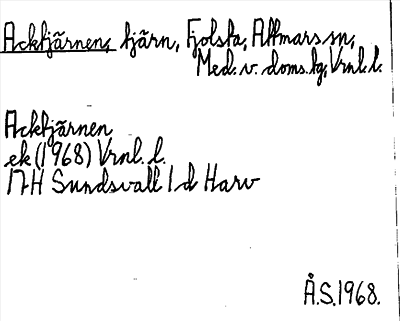 Acktjärnen, tjärn, Fjolsta, Attmars sn,
Med. v. doms. tg, Vrnl. l.
Acktjärnen
ek (1968) Vrnl. l.
17H Sundsvall 1 d Harv
Å.S. 1968.